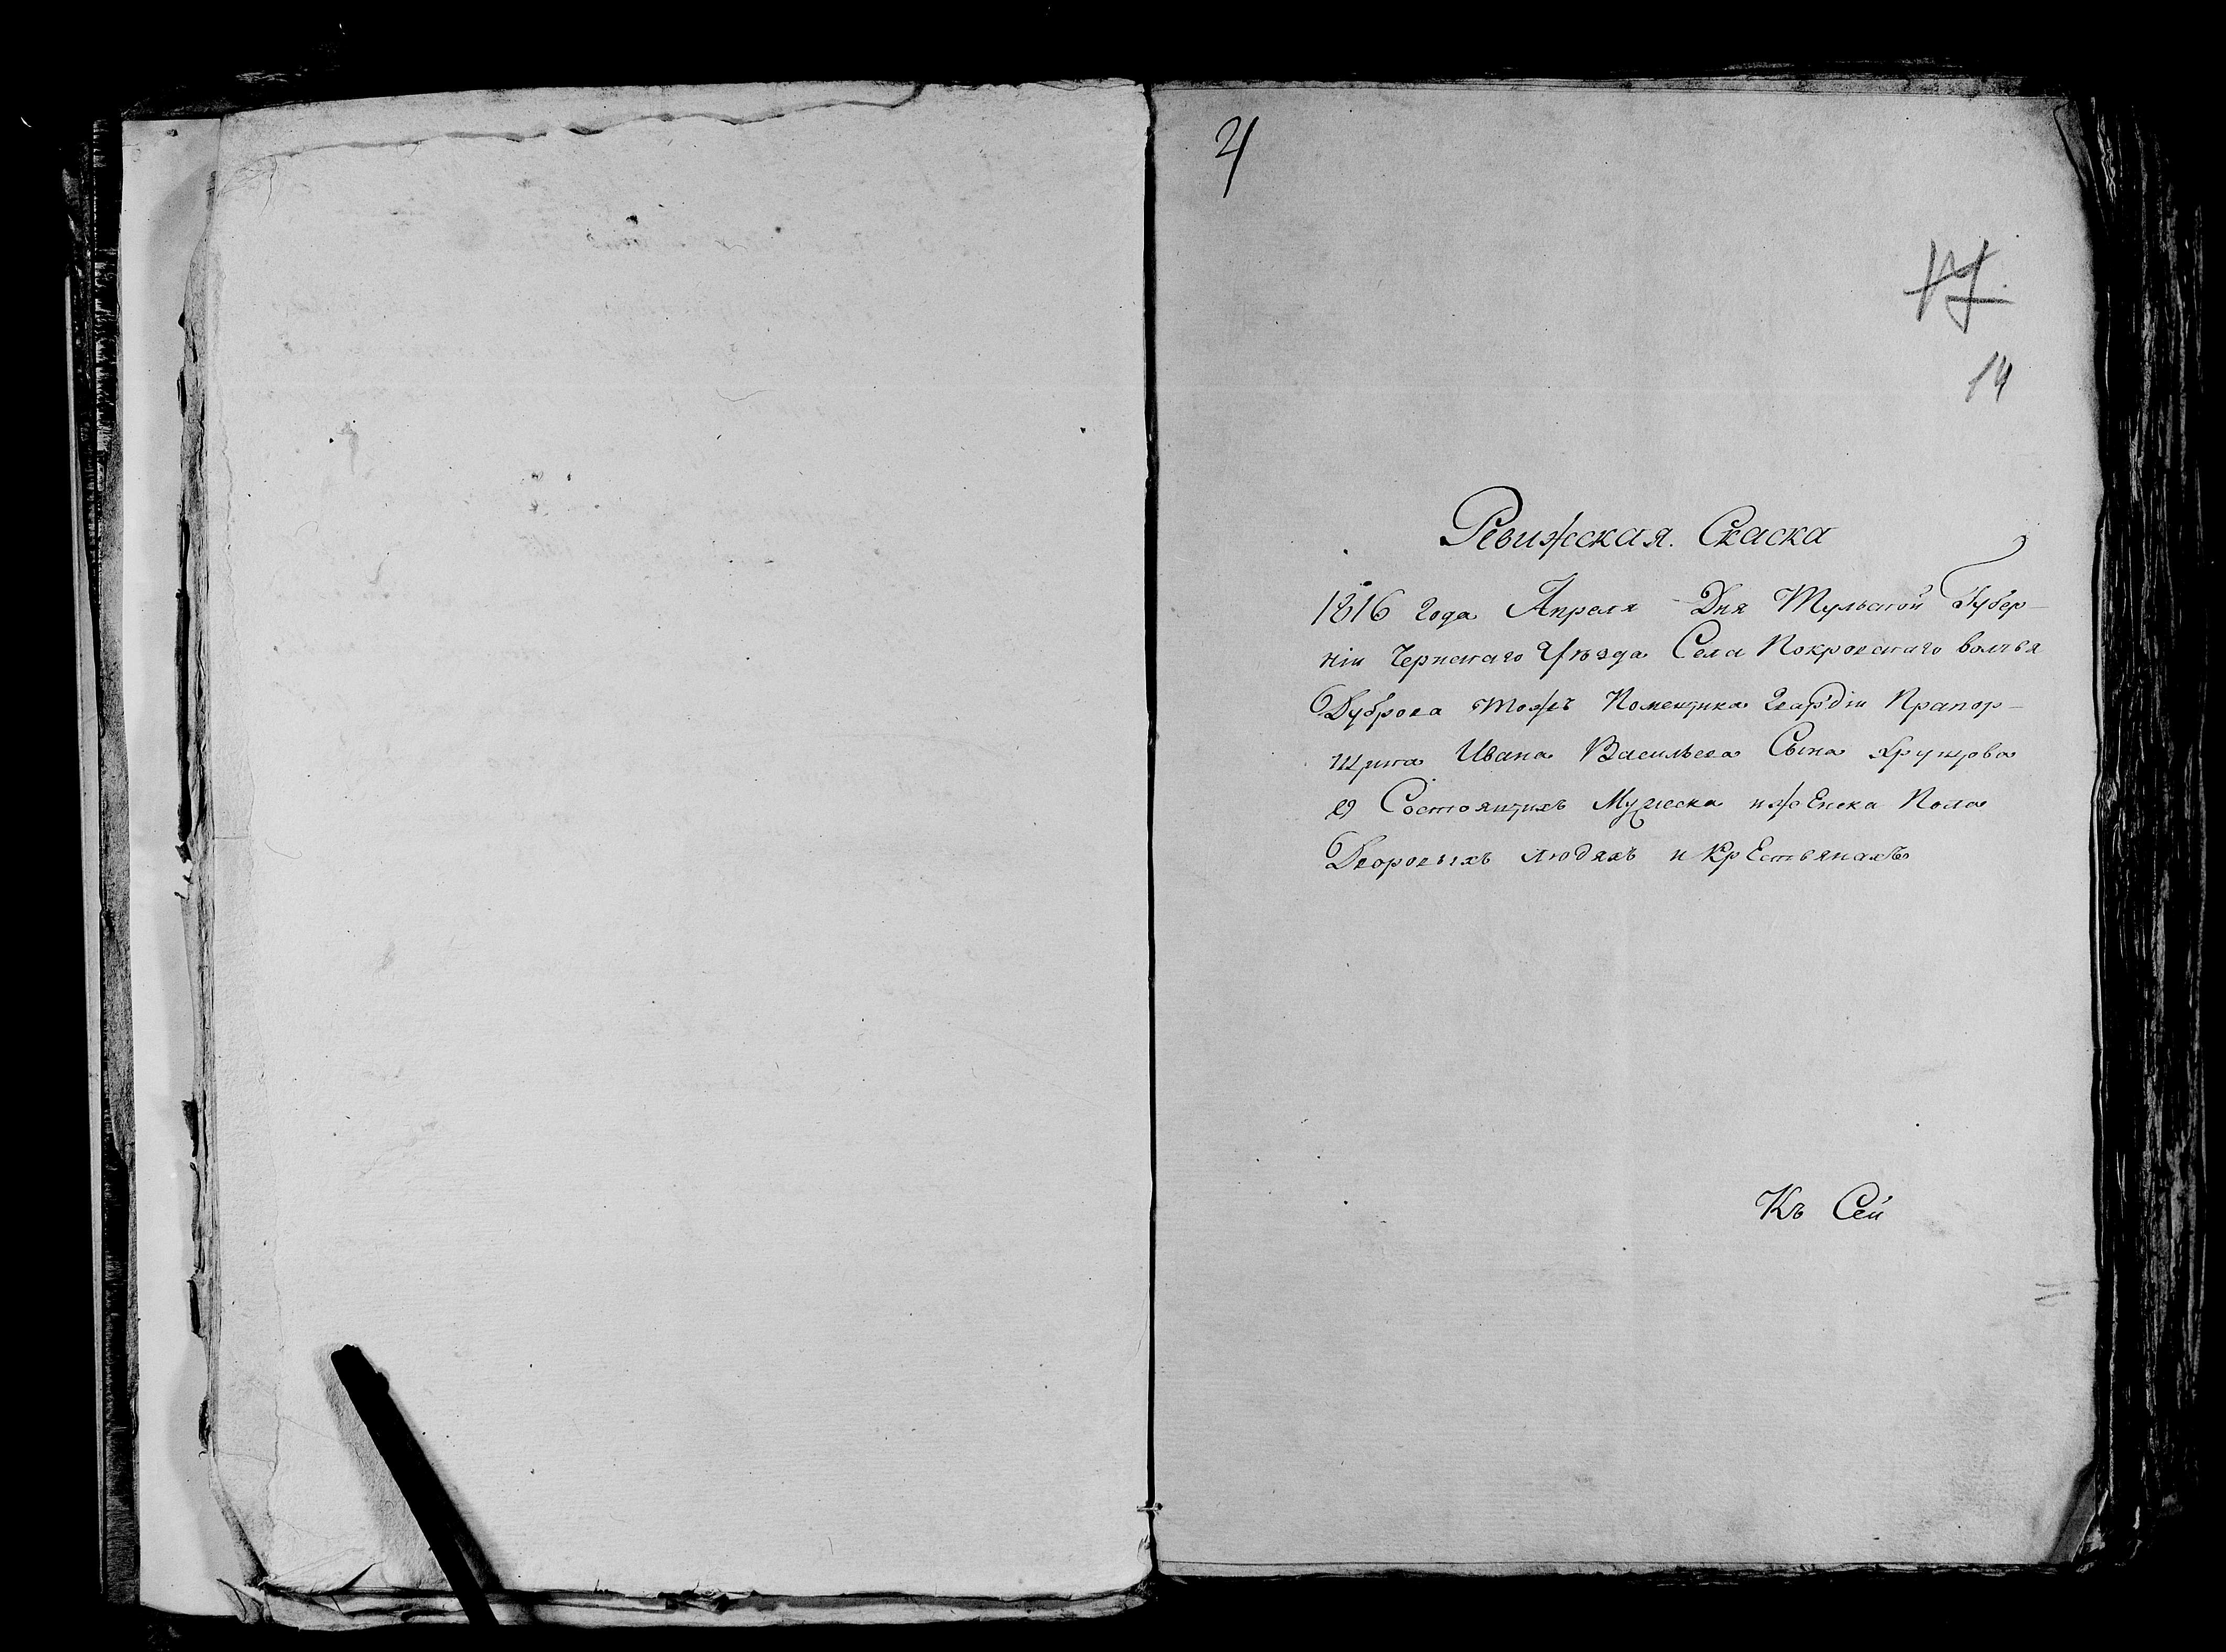 4
14
Ревижская. Скаска
1816 Года Апреля Дня Тульской Губер-
ніи Чернскаго Уѣзда Села Покровскаго волчья
Дуброва тожъ Помещика Гвардіи Прапор-
щика Ивана Васильева Сына Хрущова
О Состоящихъ Мужеска и женска Пола
Дворовыхъ людяхъ и КрЕстьянахъ
Къ Сей